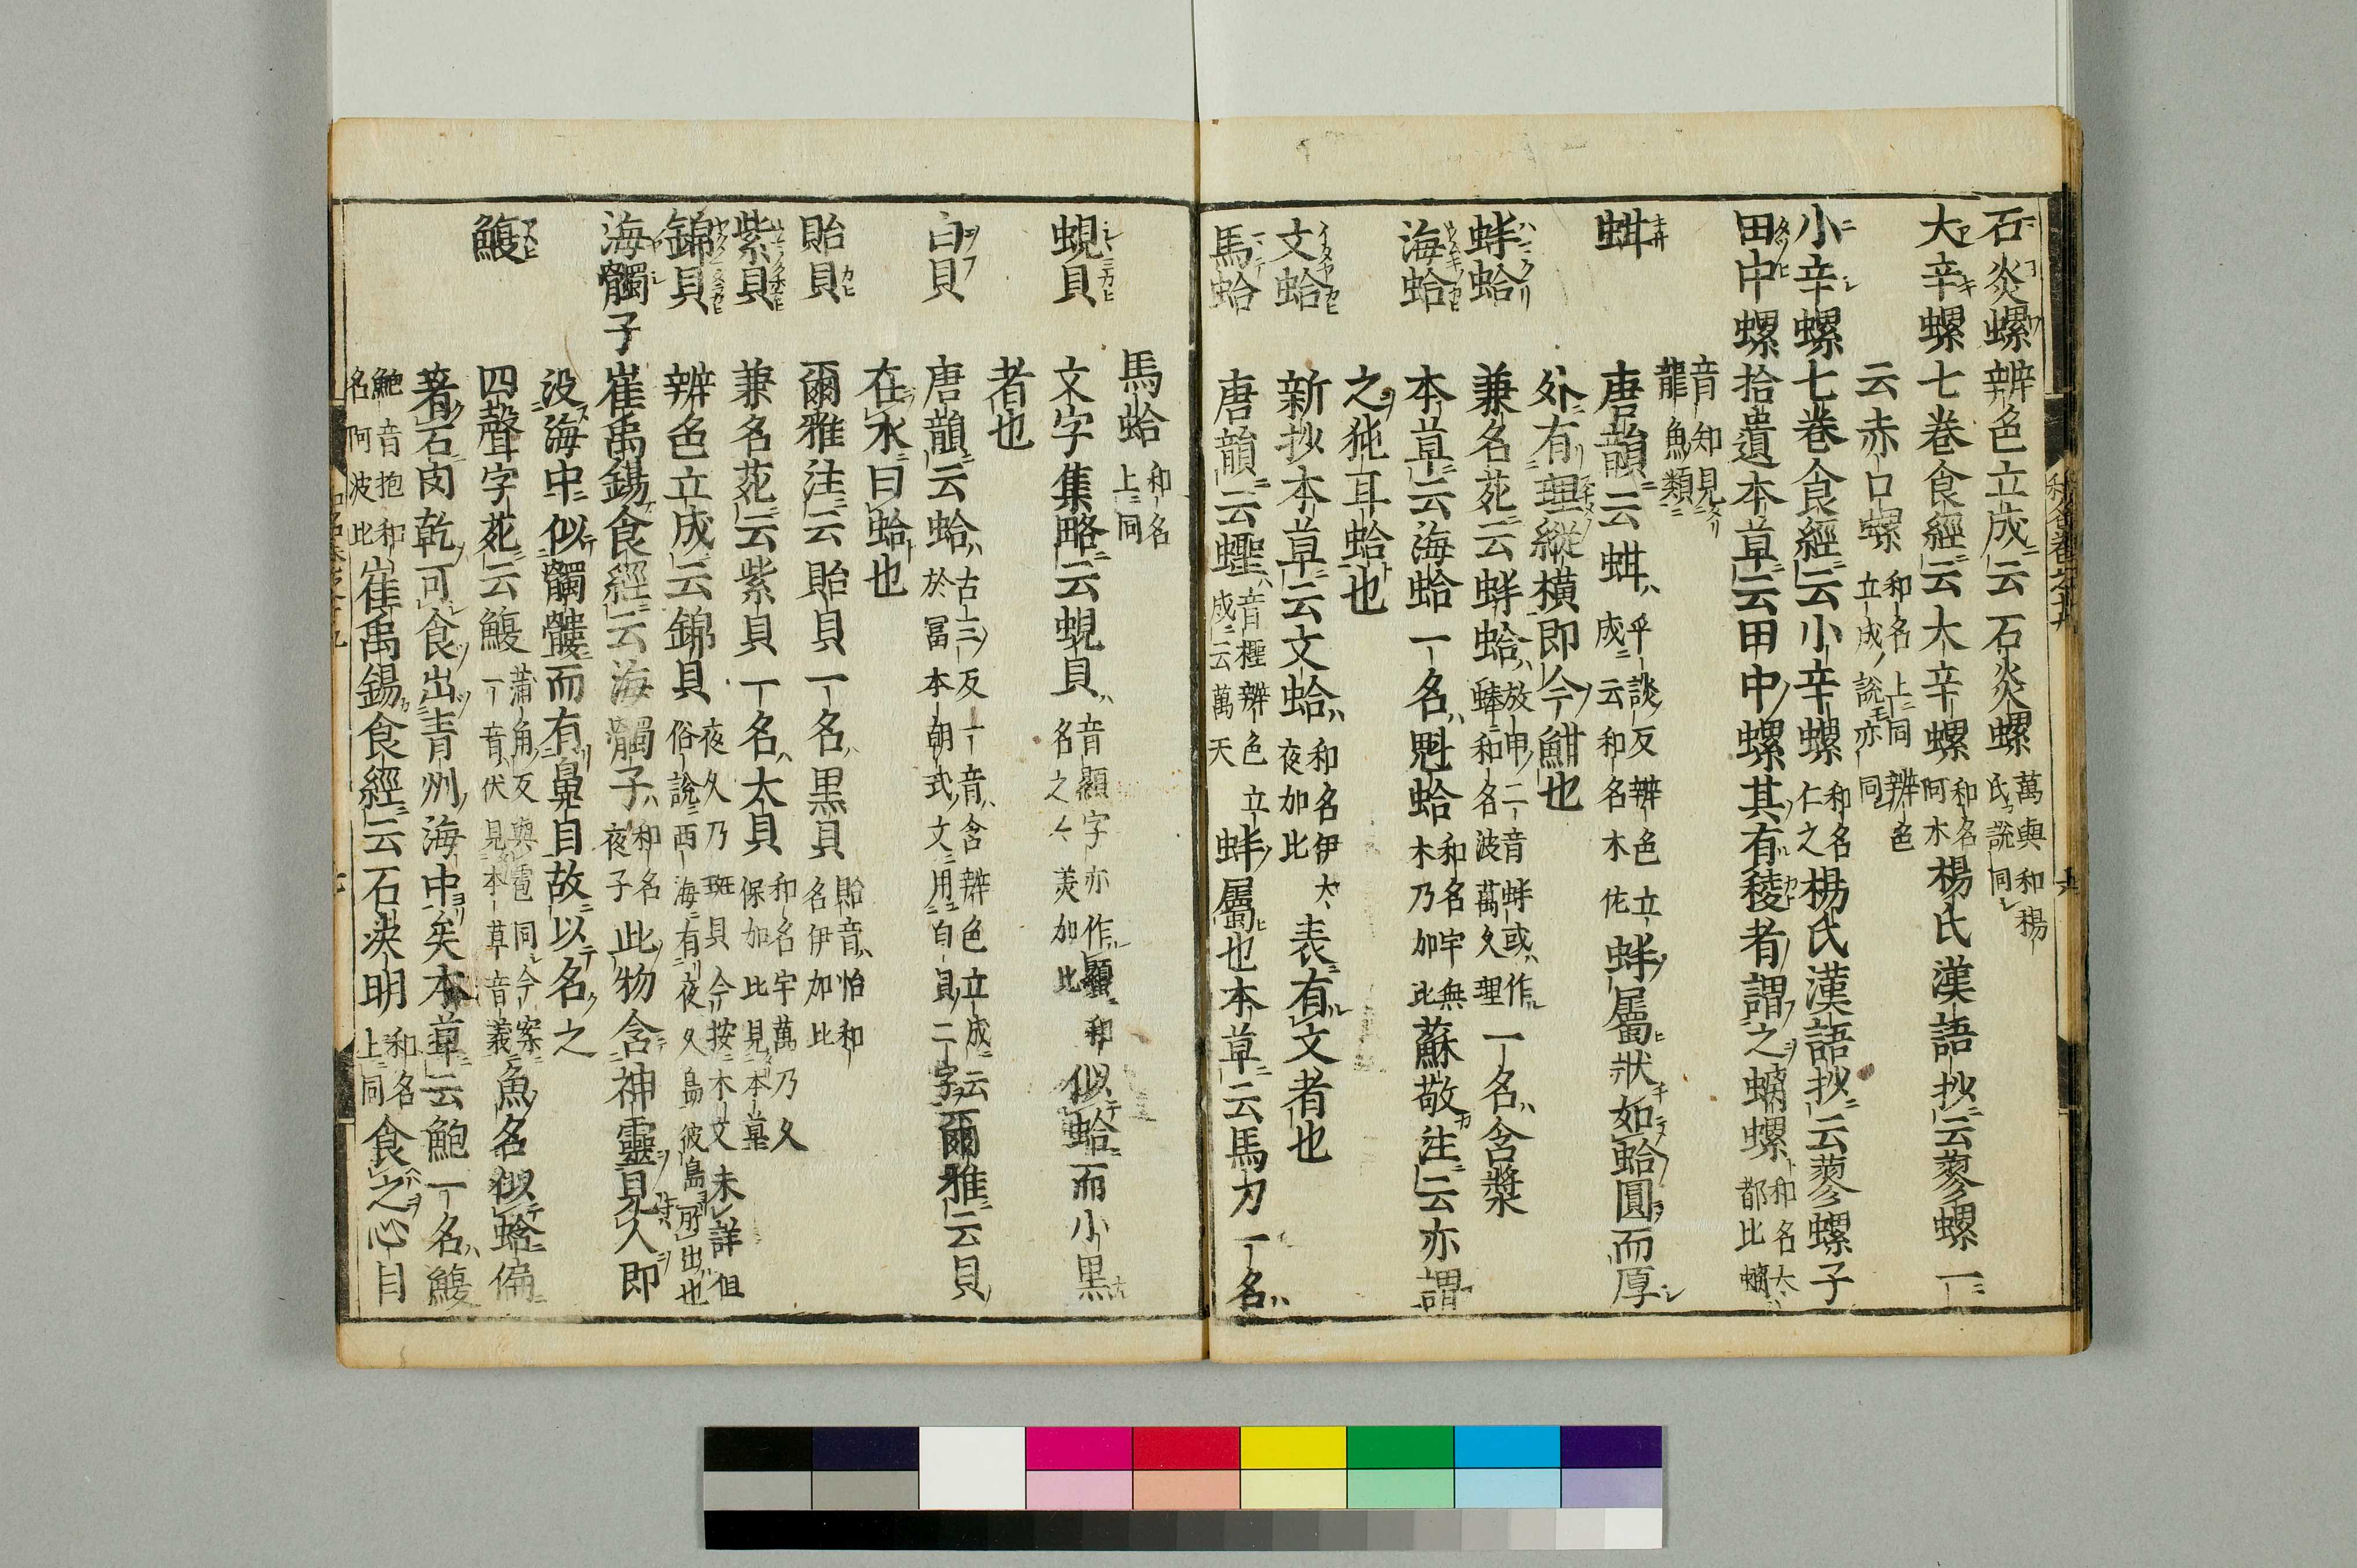 石炎螺 辨色立成云石炎螺 萬與和楊氏説同
大辛螺 七巻食經云大辛螺 和名阿木 楊氏漢語抄云蓼螺一
云赤口螺 和名上同辨色立成説亦同
小辛螺 七巻食經云小辛螺 和名仁之 楊氏漢語抄云蓼螺子
田中螺 拾遺本草云田中螺其有稜者謂之螭螺 和名太都比螭
音知見龍魚類
蚶 唐韻云蚶 乎談反辨色立成云和名木佐 蚌屬狀如蛤圓而厚
外有理縦横即今魽也
蚌蛤 兼名苑云蚌蛤 放甲二音蚌或作蜯和名波萬久理 一名含漿
海蛤 本草云海蛤一名魁蛤 和名宇無木乃加比 蘇敬注云亦謂
之㹠耳蛤也
文蛤 新抄本草云文蛤 和名伊太夜加比 表有文者也
馬蛤 唐韻云蟶 音檉辨色立成云萬天 蚌屬也本草云馬刀一名
馬蛤 和名上同
蜆貝 文字集略云蜆貝 音顯字亦作䗾和名之々美加比 似蛤而小黒
者也
白貝 唐韻云蛤 古三反一音含辨色立成云於冨本朝式文用白貝二字 爾雅云貝
在水曰蛤也
貽貝 爾雅注云貽貝一名黒貝 貽音怡和名伊加比
紫貝 兼名苑云紫貝一名大貝 和名宇萬乃久保加比見本草
錦貝 辨色立成云錦貝 夜久乃斑貝今按木文未詳但俗説西海有夜久島彼島所出也
海髑子 崔禹錫食經云海髑子 和名夜子 此物含神靈見人即
没海中似髑髏而有鼻目故以名之
鰒 四聲字苑云鰒 蒲角反與雹同今案一音伏見本草音義 魚名似蛤偏
著石肉乾可食出青州海中矣本草云鮑一名鰒
鮑音抱和名阿波比 崔禹錫食經云石决明 和名上同 食之心目